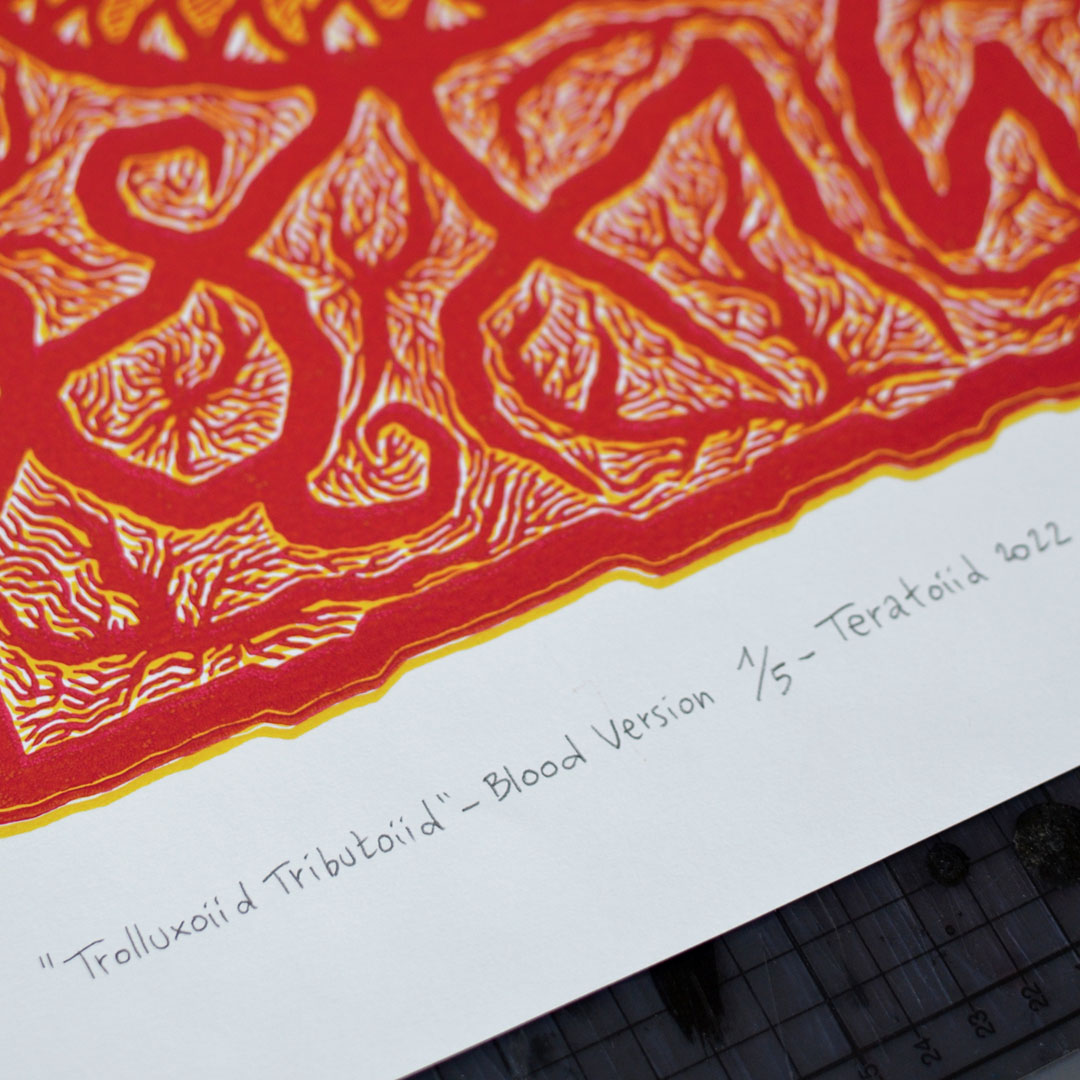 "Trolluxoiid Tributoiid" - Blood Version 1/5 - Teratoiid 2022
22
23
24